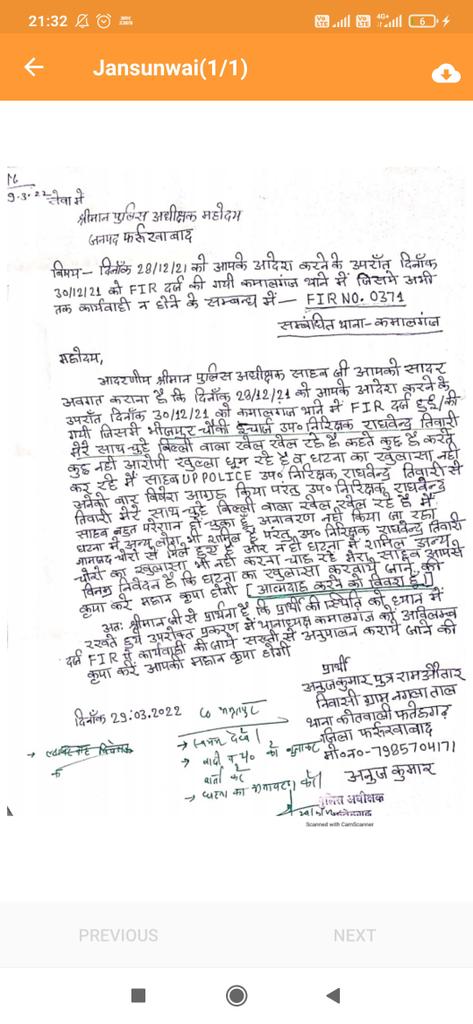 21:32
6
Jansunwai(1/1)
9-3-22
सेवा में
श्रीमान पुलिस अधीक्षक महोदय
जनपद फर्रुखाबाद
विषय - दिनाँक 28/12/21 को आपके आदेश करने के उपराँत दिनाँक
30/12/21 को FIR दर्ज की गयी कमालगंज थाने में जिसमे अभी
तक कार्यवाही न होने के सम्बन्ध में — FIR NO. 0371
सम्बंधित थाना - कमालगंज
महोदय,
आदरणीय श्रीमान पुलिस अधीक्षक साहब जी आपको सादर
अवगत कराना है कि दिनाँक 28/12/21 को आपके आदेश करने के
उपराँत दिनाँक 30/12/21 को कमालगंज थाने में FIR दर्ज हुई/की
गयी जिसमे भोजपुर चौकी इंचार्ज उप० निरिक्षक राघवेन्द्र तिवारी
मेरे साथ चूहे बिल्ली वाला खेल खेल रहे है कहते कुछ है करते
कुछ नही आरोपी खुल्ला घूम रहे है व घटना का खुलासा नही
कर रहे में साहब UP POLICE उप० निरिक्षक राघवेन्द्र तिवारी से
अनेको बार विशेष आग्रह किया परंतु उप० निरिक्षक राघवेन्द्र
तिवारी मेरे साथ चूहे बिल्ली वाला खेल खेल रहे है में
साहब बहुत परेशान हो चुका हूँ अनावरण नही किया जा रहा
घटना में अन्य लोग भी शामिल है परंतु उप० निरिक्षक राघवेन्द्र तिवारी
नामजद चोरो से मिले हुये है और नही घटना में शामिल अन्य
चोरो का खुलासा भी नही करना चाह रहे मेरा साहब आपसे
विनम्र निवेदन है कि घटना का खुलासा करवाये जाने की
कृपा करे महान कृपा होगी [आत्मदाह करने को विवश है]
अतः श्रीमान जी से प्रार्थना है कि प्रार्थी की स्थिति को ध्यान में
रखते हुये उपरोक्त प्रकरण में थानाध्यक्ष कमालगंज को अविलम्ब
दर्ज FIR में कार्यवाही की जाये सख्ती से अनुपालन कराये जाने की
कृपा करें आपकी महान कृपा होगी
प्रार्थी
अनुजकुमार पुत्र रामऔतार
निवासी ग्राम नगला ताल
थाना कोतवाली फतेहगढ़
जिला फर्रुखाबाद
मो०न०-7985704171
अनुज कुमार
दिनाँक 29.03.2022
→ स्वयं देखे।
पुलिस अधीक्षक
फतेहगढ़
Scanned with CamScanner
PREVIOUS
NEXT